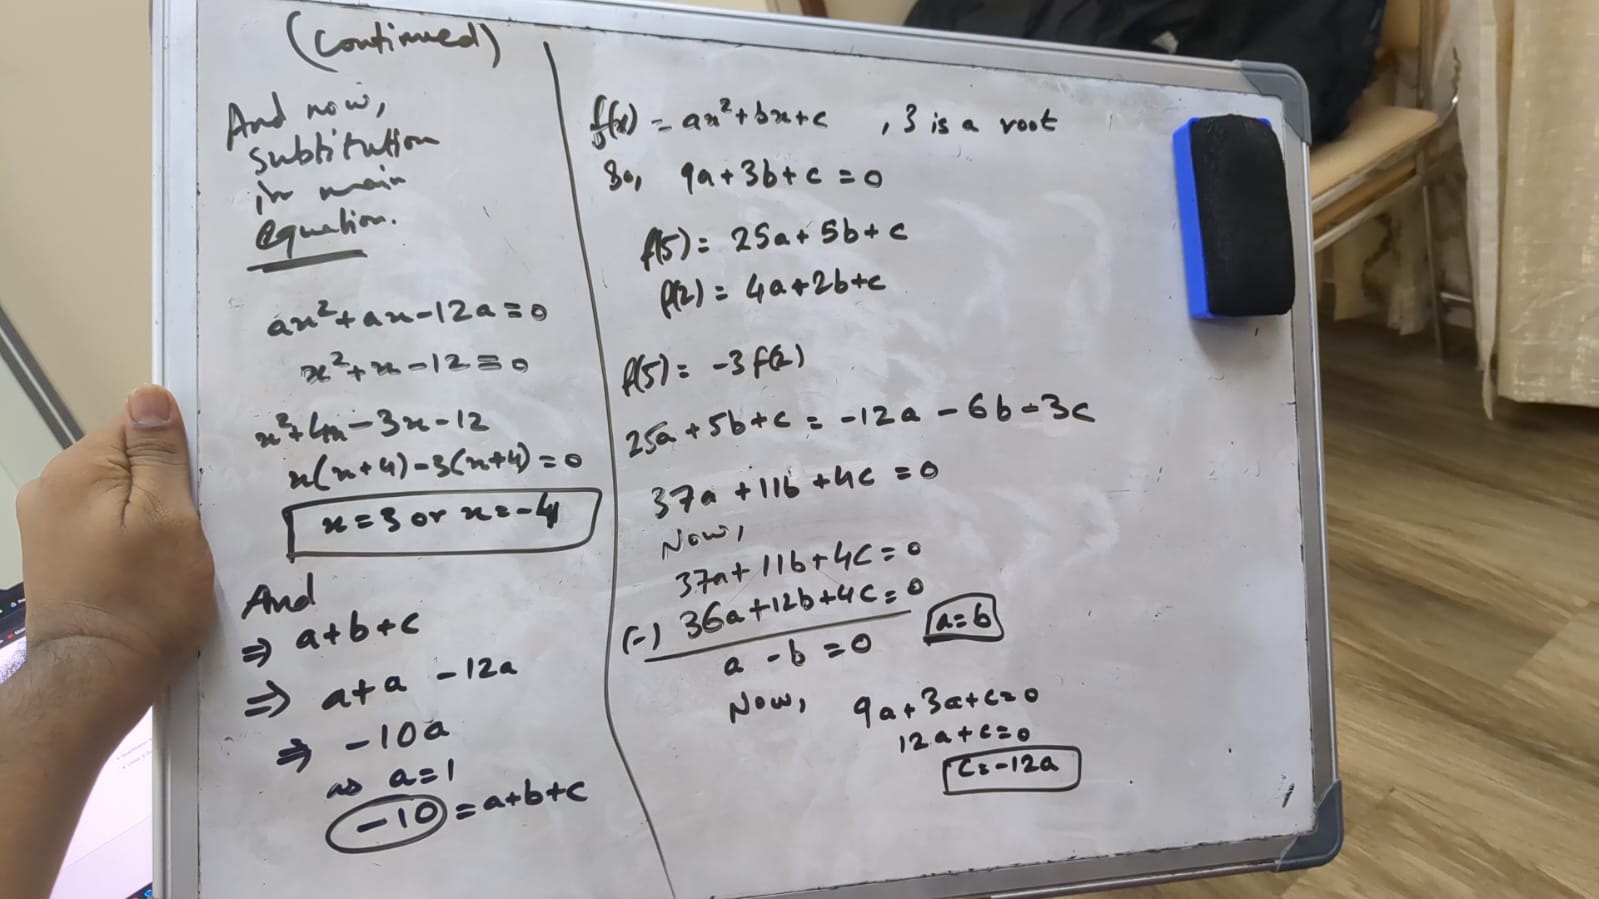 f(x) = ax²+bx+c , 3 is a root
So, 9a+3b+c=0
f(5)= 25a+5b+c
f(2)= 4a+2b+c
f(5)= -3f(2)
25a+5b+c = -12a-6b-3c
37a+11b+4c=0
Now,
37a+11b+4c=0
(-) 36a+12b+4c=0
a-b=0 a=b
Now, 9a+3a+c=0
12a+c=0
c=-12a
(Continued)
And now,
substitution
in main
equation.
ax²+ax-12a=0
x²+x-12=0
x²+4x-3x-12
x(x+4)-3(x+4)=0
x=3 or x=-4
And
⇒ a+b+c
⇒ a+a-12a
⇒ -10a
as a=1
-10=a+b+c